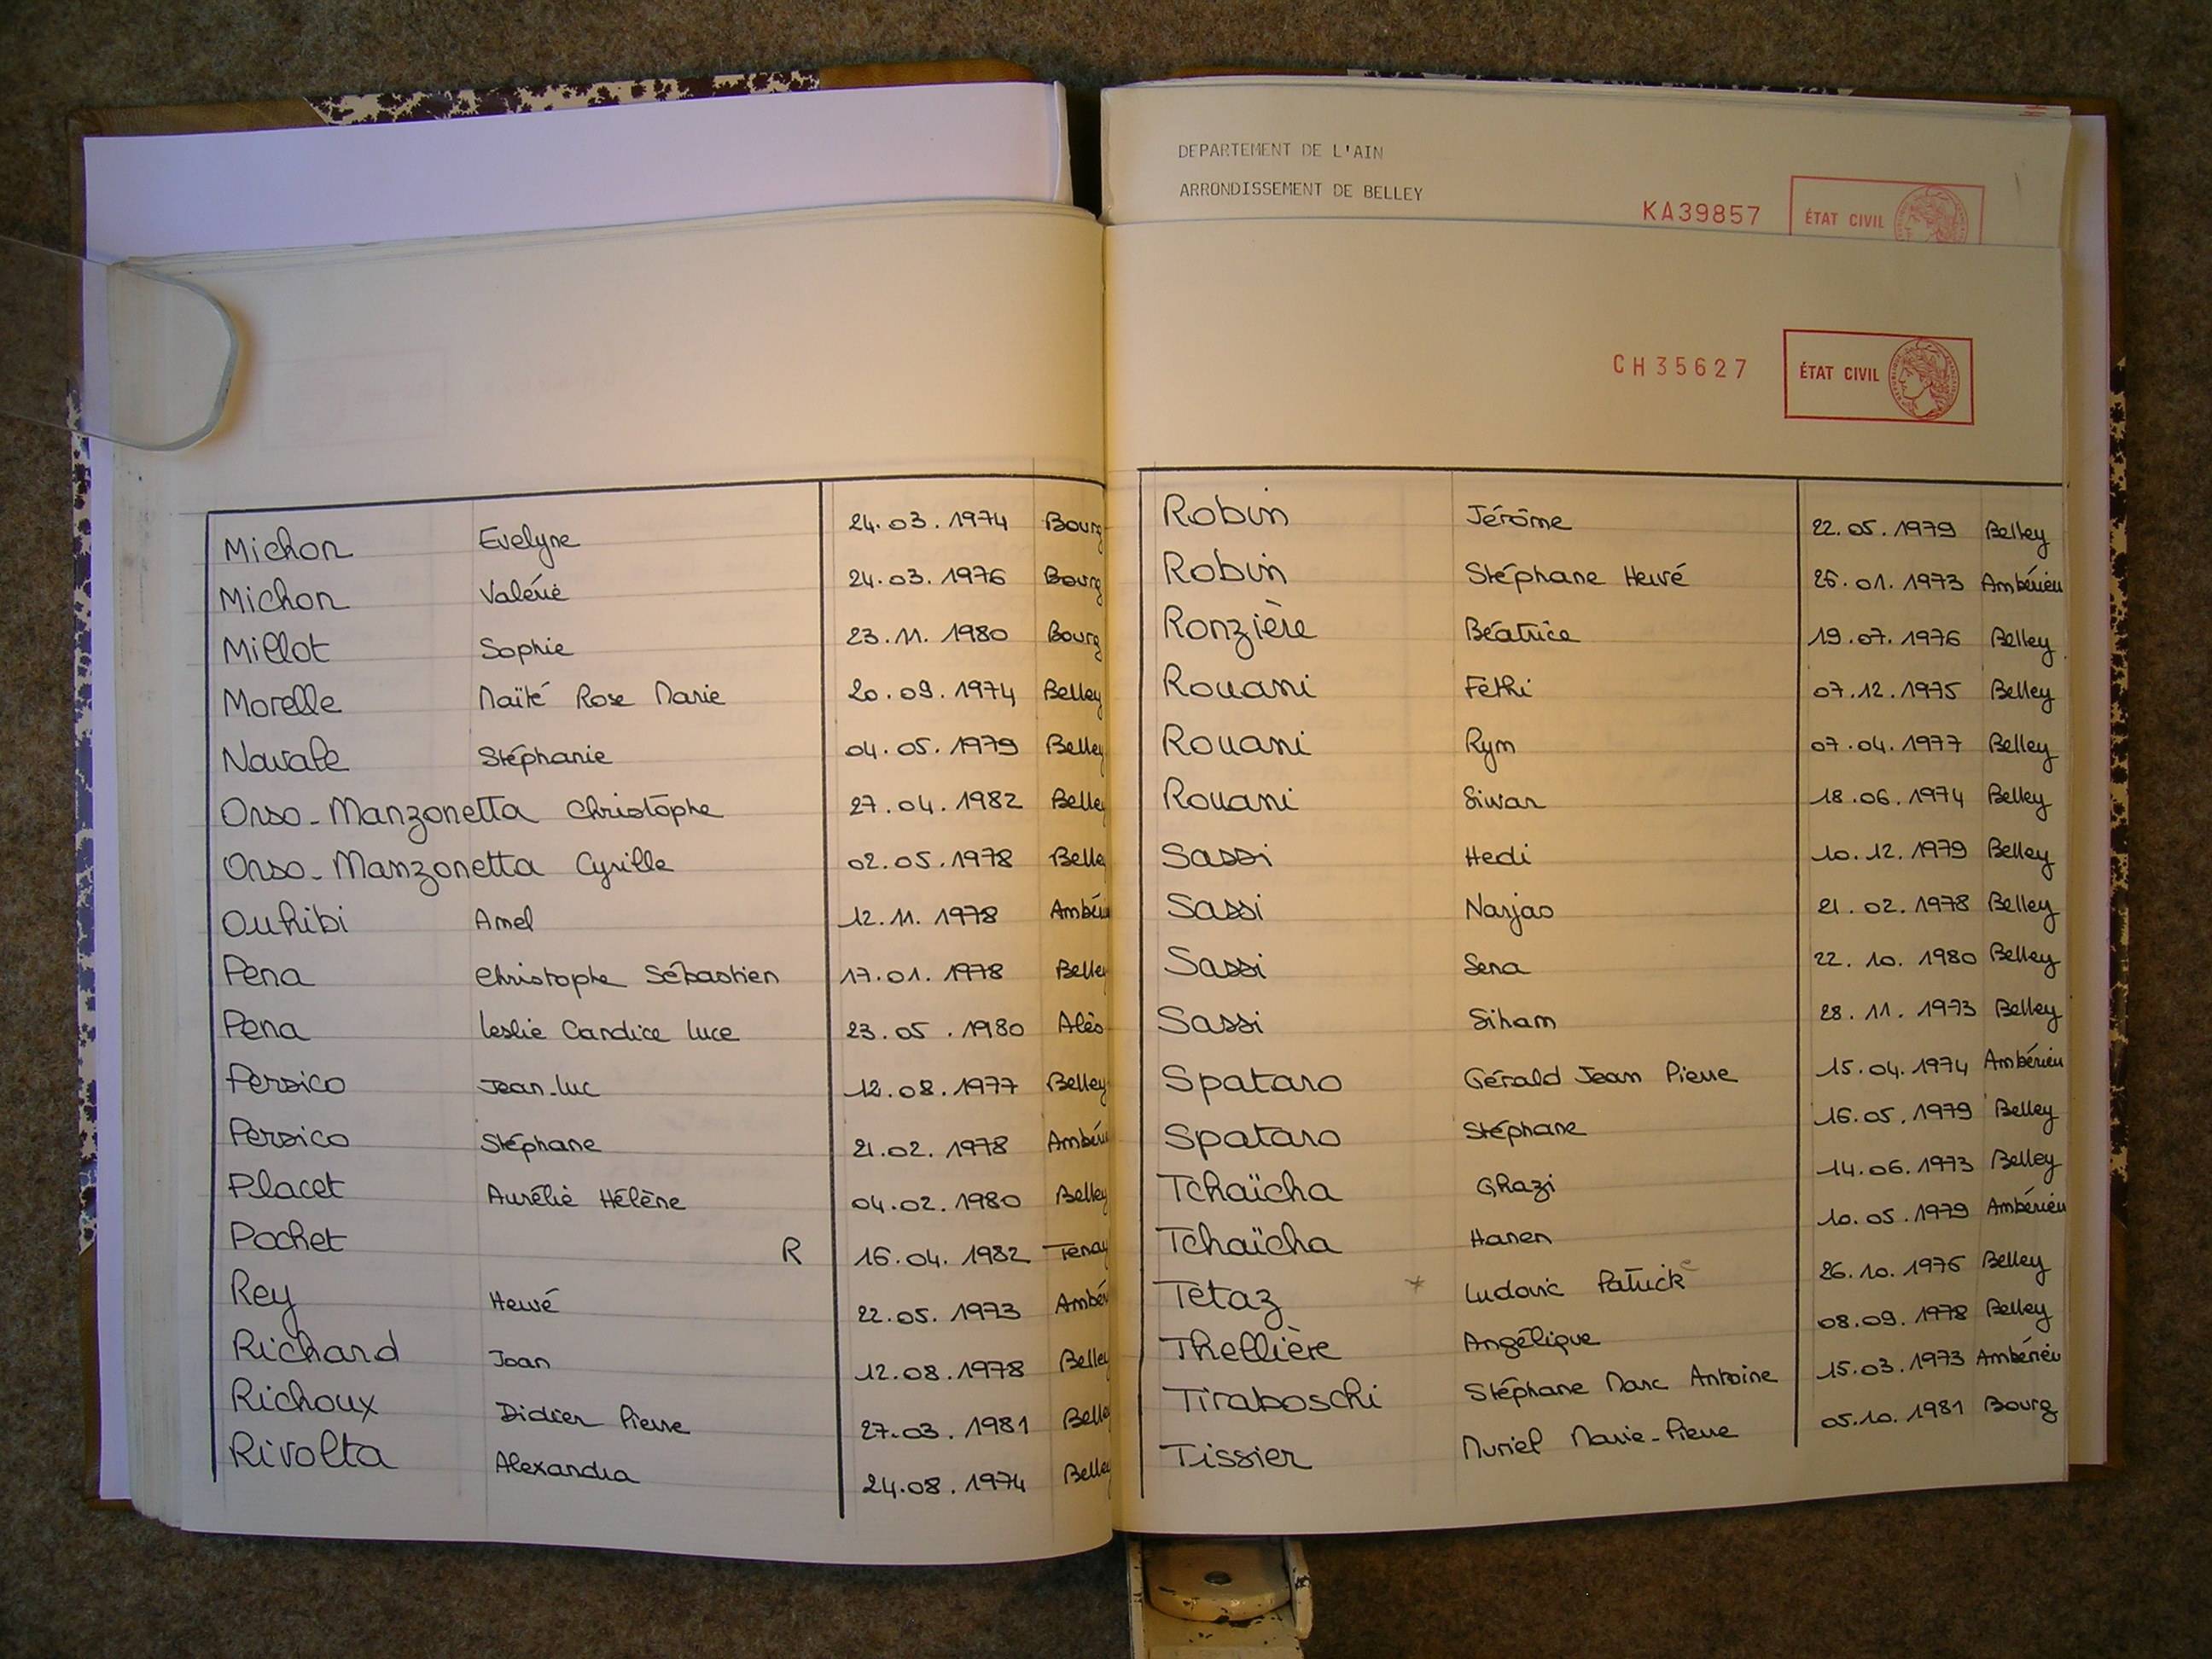 Michon Evelyne 24.03.1974 Bourg
Michon Valérie 24.03.1976 Bourg
Millot Sophie 23.11.1980 Bourg
Morelle Maïté Rose Marie 20.09.1974 Belley
Navale Stéphanie 04.05.1979 Belley
Orso-Manzonetta Christophe 27.04.1982 Belley
Orso-Manzonetta Cyrille 02.05.1978 Belley
Ouhibi Amel 12.11.1978 Ambéri
Pena Christophe Sébastien 17.01.1978 Belley
Pena Leslie Candice Luce 23.05.1980 Alès
Persico Jean-Luc 12.08.1977 Belley
Persico Stéphane 21.02.1978 Ambéri
Placet Aurélie Hélène 04.02.1980 Belley
Pochet R 16.04.1982 Tenay
Rey Hervé 22.05.1973 Ambér
Richard Joan 12.08.1978 Belley
Richoux Didier Pierre 27.03.1981 Belle
Rivolta Alexandra 24.08.1974 Belley
DEPARTEMENT DE L'AIN
ARRONDISSEMENT DE BELLEY
KA39857 ÉTAT CIVIL
CH35627 ÉTAT CIVIL
Robin Jérôme 22.05.1979 Belley
Robin Stéphane Hervé 26.01.1973 Ambérieu
Ronzière Béatrice 19.07.1976 Belley
Rouani Féthi 07.12.1975 Belley
Rouani Rym 07.04.1977 Belley
Rouani Siwar 18.06.1974 Belley
Sassi Hedi 10.12.1979 Belley
Sassi Narjas 21.02.1978 Belley
Sassi Sena 22.10.1980 Belley
Sassi Siham 28.11.1973 Belley
Spataro Gérald Jean Pierre 15.04.1974 Ambérieu
Spataro Stéphane 16.05.1979 Belley
Tchaïcha Ghazi 14.06.1973 Belley
Tchaïcha Hanen 10.05.1979 Ambérieu
Tétaz Ludovic Patrick 26.10.1976 Belley
Thellière Angélique 08.09.1978 Belley
Tiraboschi Stéphane Marc Antoine 15.03.1973 Ambérieu
Tissier Muriel Marie-Pierre 05.10.1981 Bourg